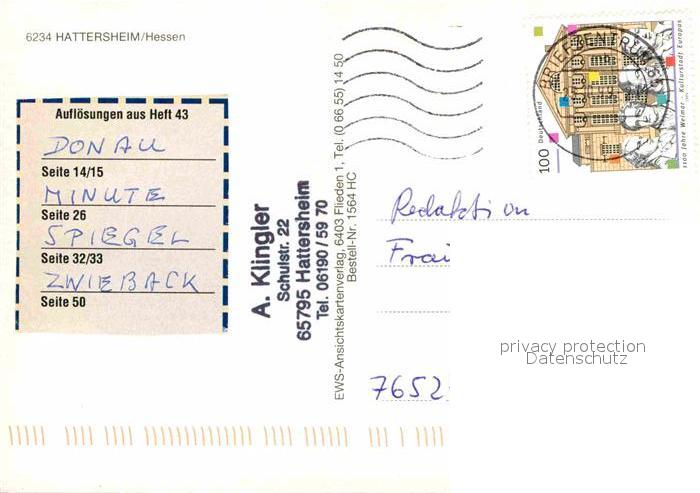 6234 HATTERSHEIM/Hessen
Auflösungen aus Heft 43
DONAU
Seite 14/15
MINUTE
Seite 26
SPIEGEL
Seite 32/33
ZWIEBACK
Seite 50
A. Klingler
Schulstr. 22
65795 Hattersheim
Tel. 06190/59 70
EWS-Ansichtskartenverlag, 6403 Flieden 1, Tel. (0 66 55) 14 50
Bestell-Nr. 1564 HC
BRIEFZENTRUM
100 Deutschland
1100 Jahre Weimar - Kulturstadt Europas
Redaktion
Frau
7652
privacy protection
Datenschutz